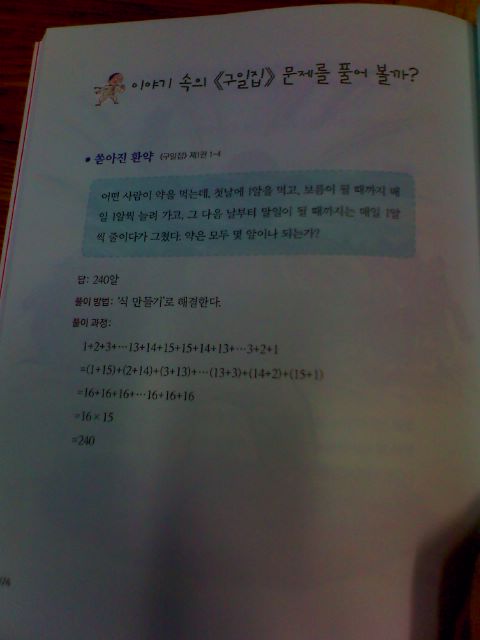 이야기 속의 《구일집》 문제를 풀어 볼까?
• 쏟아진 환약 《구일집》 제1권 1-4
어떤 사람이 약을 먹는데, 첫날에 1알을 먹고, 보름이 될 때까지 매
일 1알씩 늘려 가고, 그 다음 날부터 말일이 될 때까지는 매일 1알
씩 줄이다가 그쳤다. 약은 모두 몇 알이나 되는가?
답: 240알
풀이 방법: '식 만들기'로 해결한다.
풀이 과정:
1+2+3+⋯13+14+15+15+14+13+⋯3+2+1
=(1+15)+(2+14)+(3+13)+⋯(13+3)+(14+2)+(15+1)
=16+16+16+⋯16+16+16
=16×15
=240